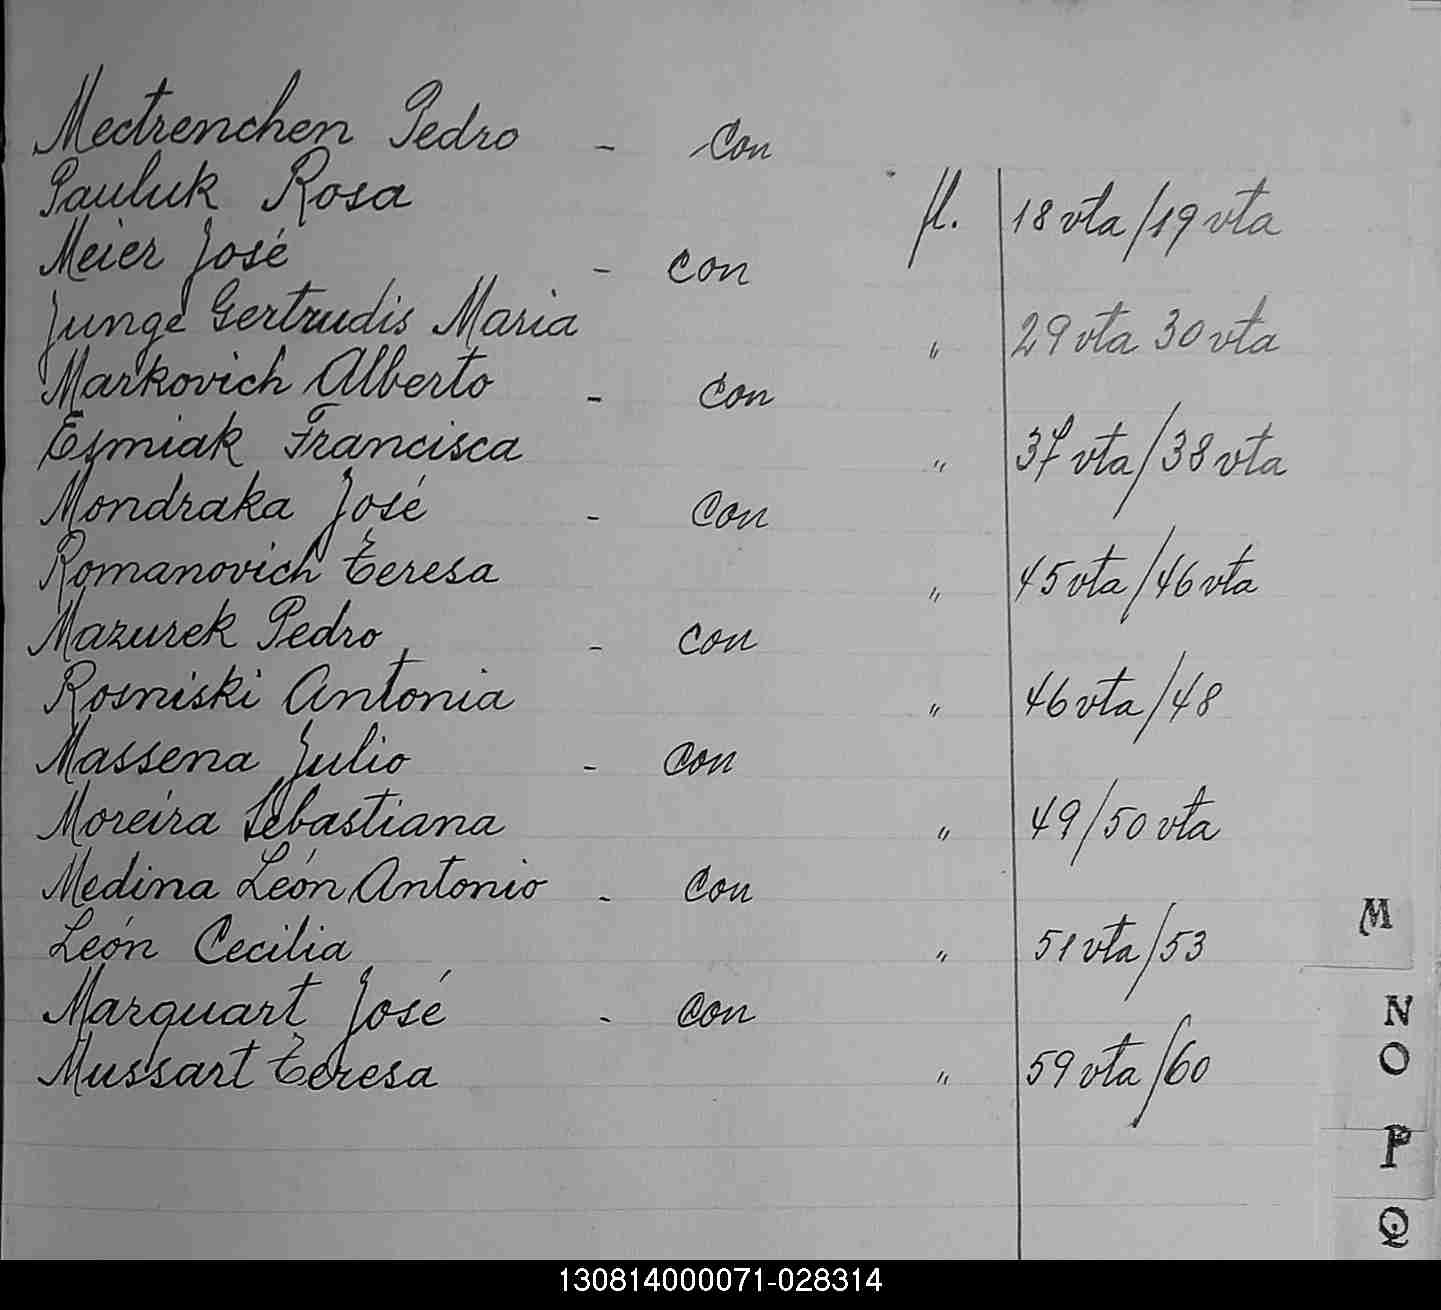 Mectrenchen Pedro - Con
Pauluk Rosa fl. 18 vta/19 vta
Meier José - con
Junge Gertrudis Maria " 29 vta 30 vta
Markovich Alberto - Con
Esmiak Francisca " 37 vta/38 vta
Mondraka José - Con
Romanovich Teresa " 45 vta/46 vta
Mazurek Pedro - con
Rosniski Antonia " 46 vta/48
Massena Julio - Con
Moreira Sebastiana " 49/50 vta
Medina León Antonio - Con
León Cecilia " 51 vta/53
Marquart José - Con
Mussart Teresa " 59 vta/60
M
N
O
P
Q
130814000071-028314